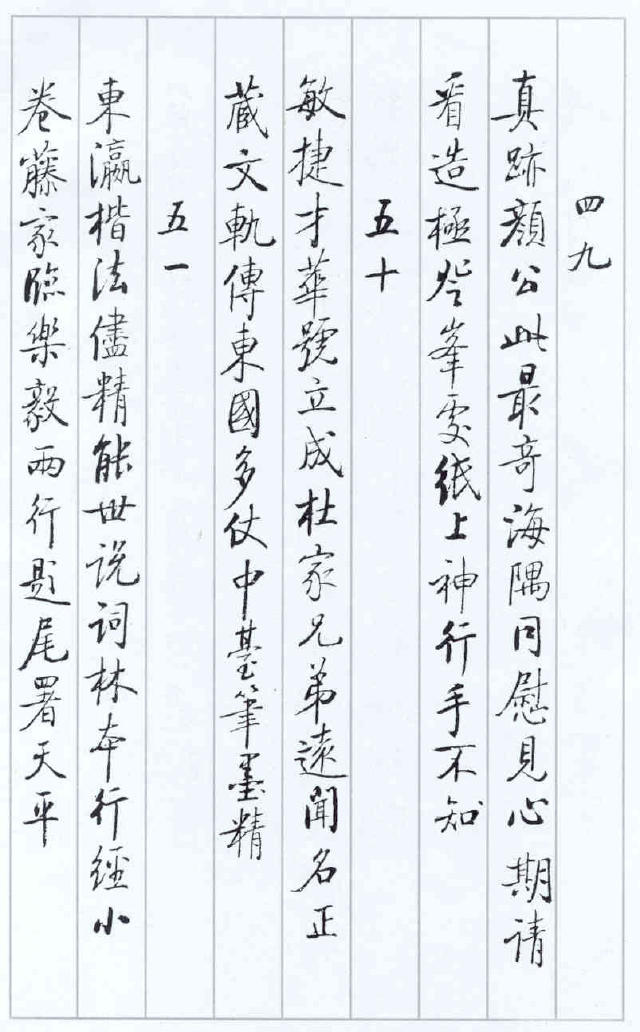 四九
真跡顔公此最奇海隅同慰見心期请
看造極登峯處紙上神行手不知
五十
敏捷才華號立成杜家兄弟遠聞名正
蔵文軌傳東國多仗中臺筆墨精
五一
東瀛楷法儘精能世说詞林本行經小
卷藤家臨樂毅兩行題尾署天平